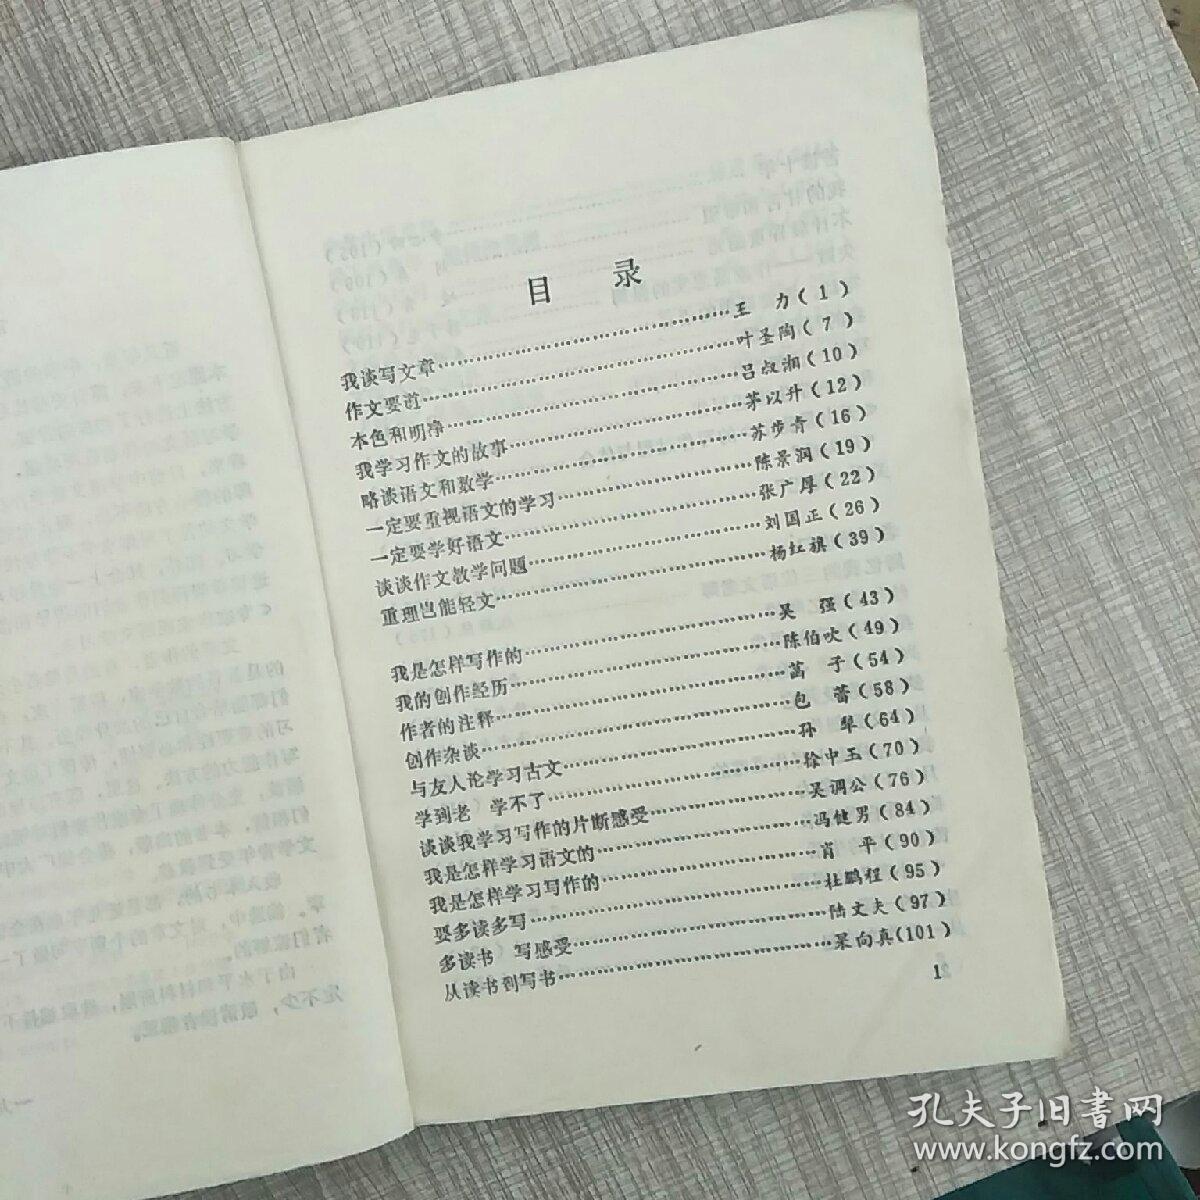 目　录
我谈写文章……王　力（1）
作文要道……叶圣陶（7）
本色和明净……吕叔湘（10）
我学习作文的故事……茅以升（12）
略谈语文和数学……苏步青（16）
一定要重视语文的学习……陈景润（19）
一定要学好语文……张广厚（22）
谈谈作文教学问题……刘国正（26）
重理岂能轻文……杨红旗（39）
我是怎样写作的……吴　强（43）
我的创作经历……陈伯吹（49）
作者的注释……菡　子（54）
创作杂谈……包　蕾（58）
与友人论学习古文……孙　犁（64）
学到老　学不了……徐中玉（70）
谈谈我学习写作的片断感受……吴调公（76）
我是怎样学习语文的……冯健男（84）
我是怎样学习写作的……肖　平（90）
要多读多写……杜鹏程（95）
多读书　写感受……陆文夫（97）
从读书到写书……杲向真（101）
1
孔夫子旧书网
www.kongfz.com